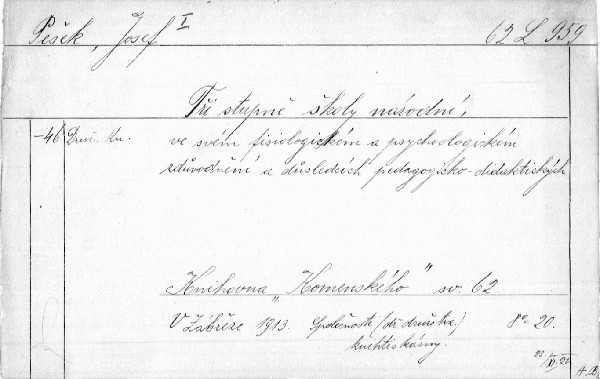 Pešek, Josef I 62 L 959
Tři stupně školy národní,
-46 Druž. kn. ve svém fisiologickém a psychologickém
zdůvodnění a důsledcích pedagogicko-didaktických
Knihovna „Komenského" sv. 62
V Zábřeze 1913. Společností (dř. družstva)
knihtiskárny. 8° 20.
A.B.